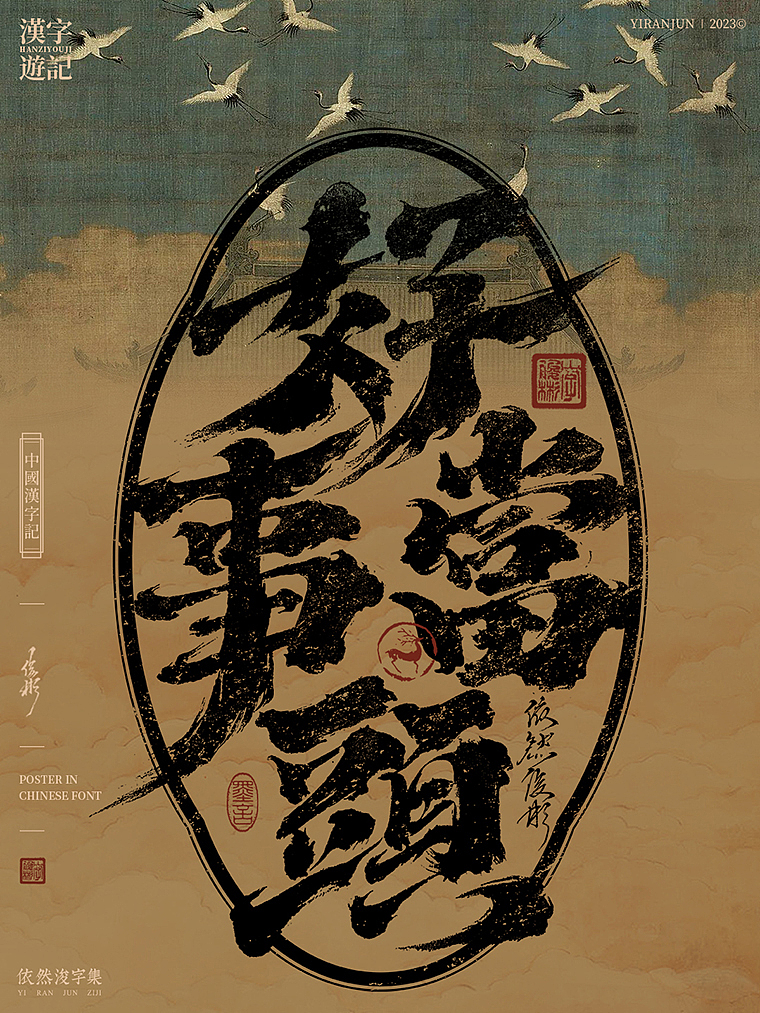 漢字
HANZIYOUJI
遊記
YIRANJUN | 2023©
好
事
當
頭
中國漢字記
依然俊彬
俊彬
POSTER IN
CHINESE FONT
依然浚字集
YI RAN JUN ZIJI